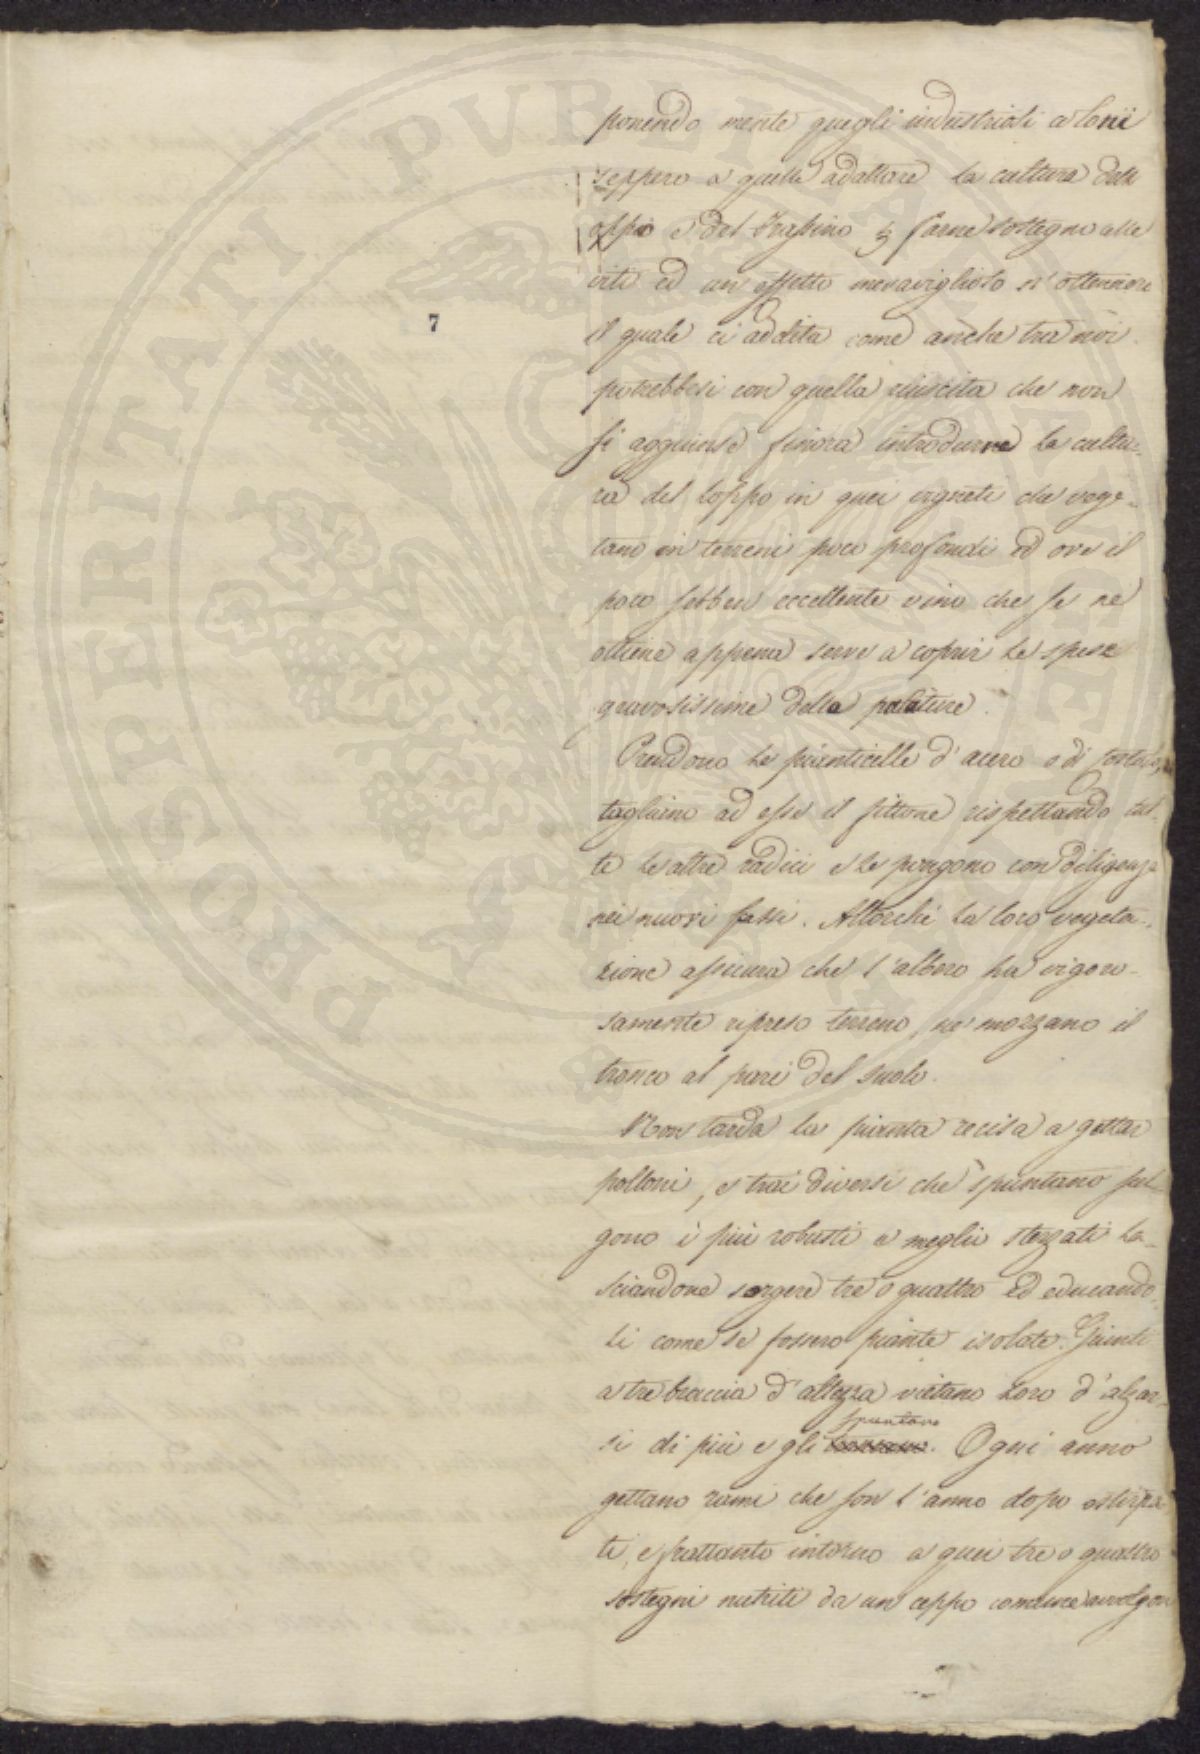 ponendo mente quegli industriosi coloni
seppero a quelle adattare la cultura dell
oppio e del frassino p farne sostegno alle
viti ed un effetto meraviglioso n'ottennero
7
il quale ci addita come anche tra noi
potrebbesi con quella riuscita che non
si aggiunse finora introdurre la cultu-
ra del loppo in quei vigneti che vege-
tano in terreni poco profondi ed ove il
poco sebben eccellente vino che se ne
ottiene appena serve a coprir le spese
gravosissime della palature.
Prendono le pianticelle d'acero o di
tagliano ad esse il fittone rispettando tut-
te le altre radici e le pongono con diligenza
nei nuovi fossi. Allorchè la loro vegeta-
zione assicura che l'albero ha vigoro-
samente ripreso terreno, ne mozzano il
tronco al pari del suolo.
Non tarda la pianta recisa a gettar
polloni, e trai diversi che spuntano scel-
gono i più robusti e meglio sterzati la-
sciandone sorgere tre o quattro ed educando-
li come se fossero piante isolate. Giunti
a tre braccia d'altezza vietano loro d'alzar-
si di più e gli spuntano. Ogni anno
gettano rami che son l'anno dopo estirpa
ti, e frattanto intorno a quei tre o quattro
sostegni nutriti da un ceppo comune avvolgon